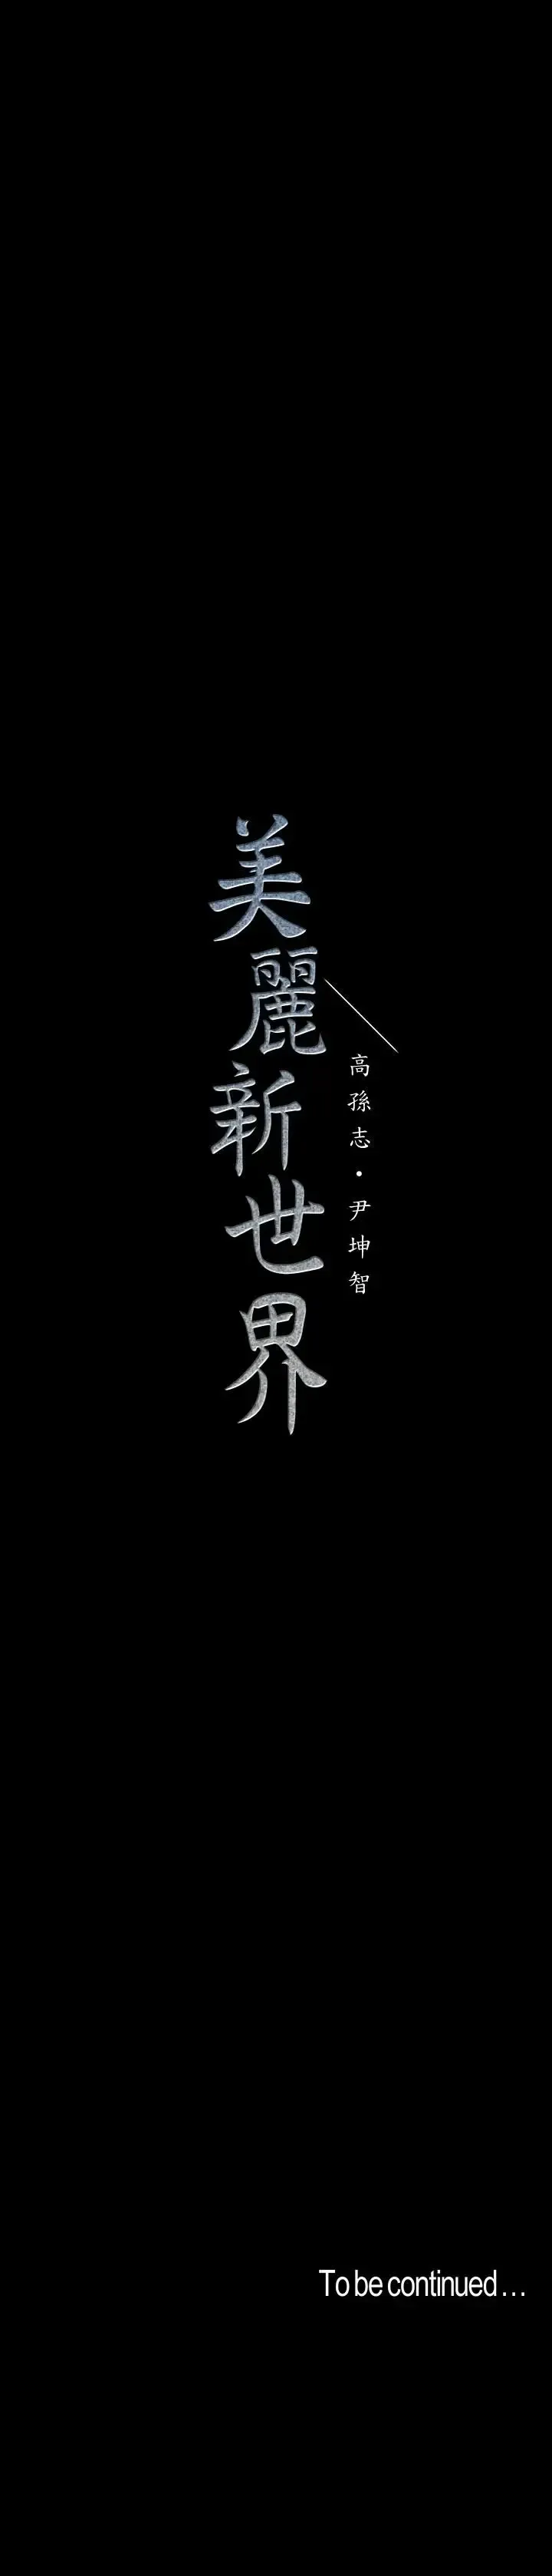 美麗新世界
高孫志・尹坤智
To be continued...